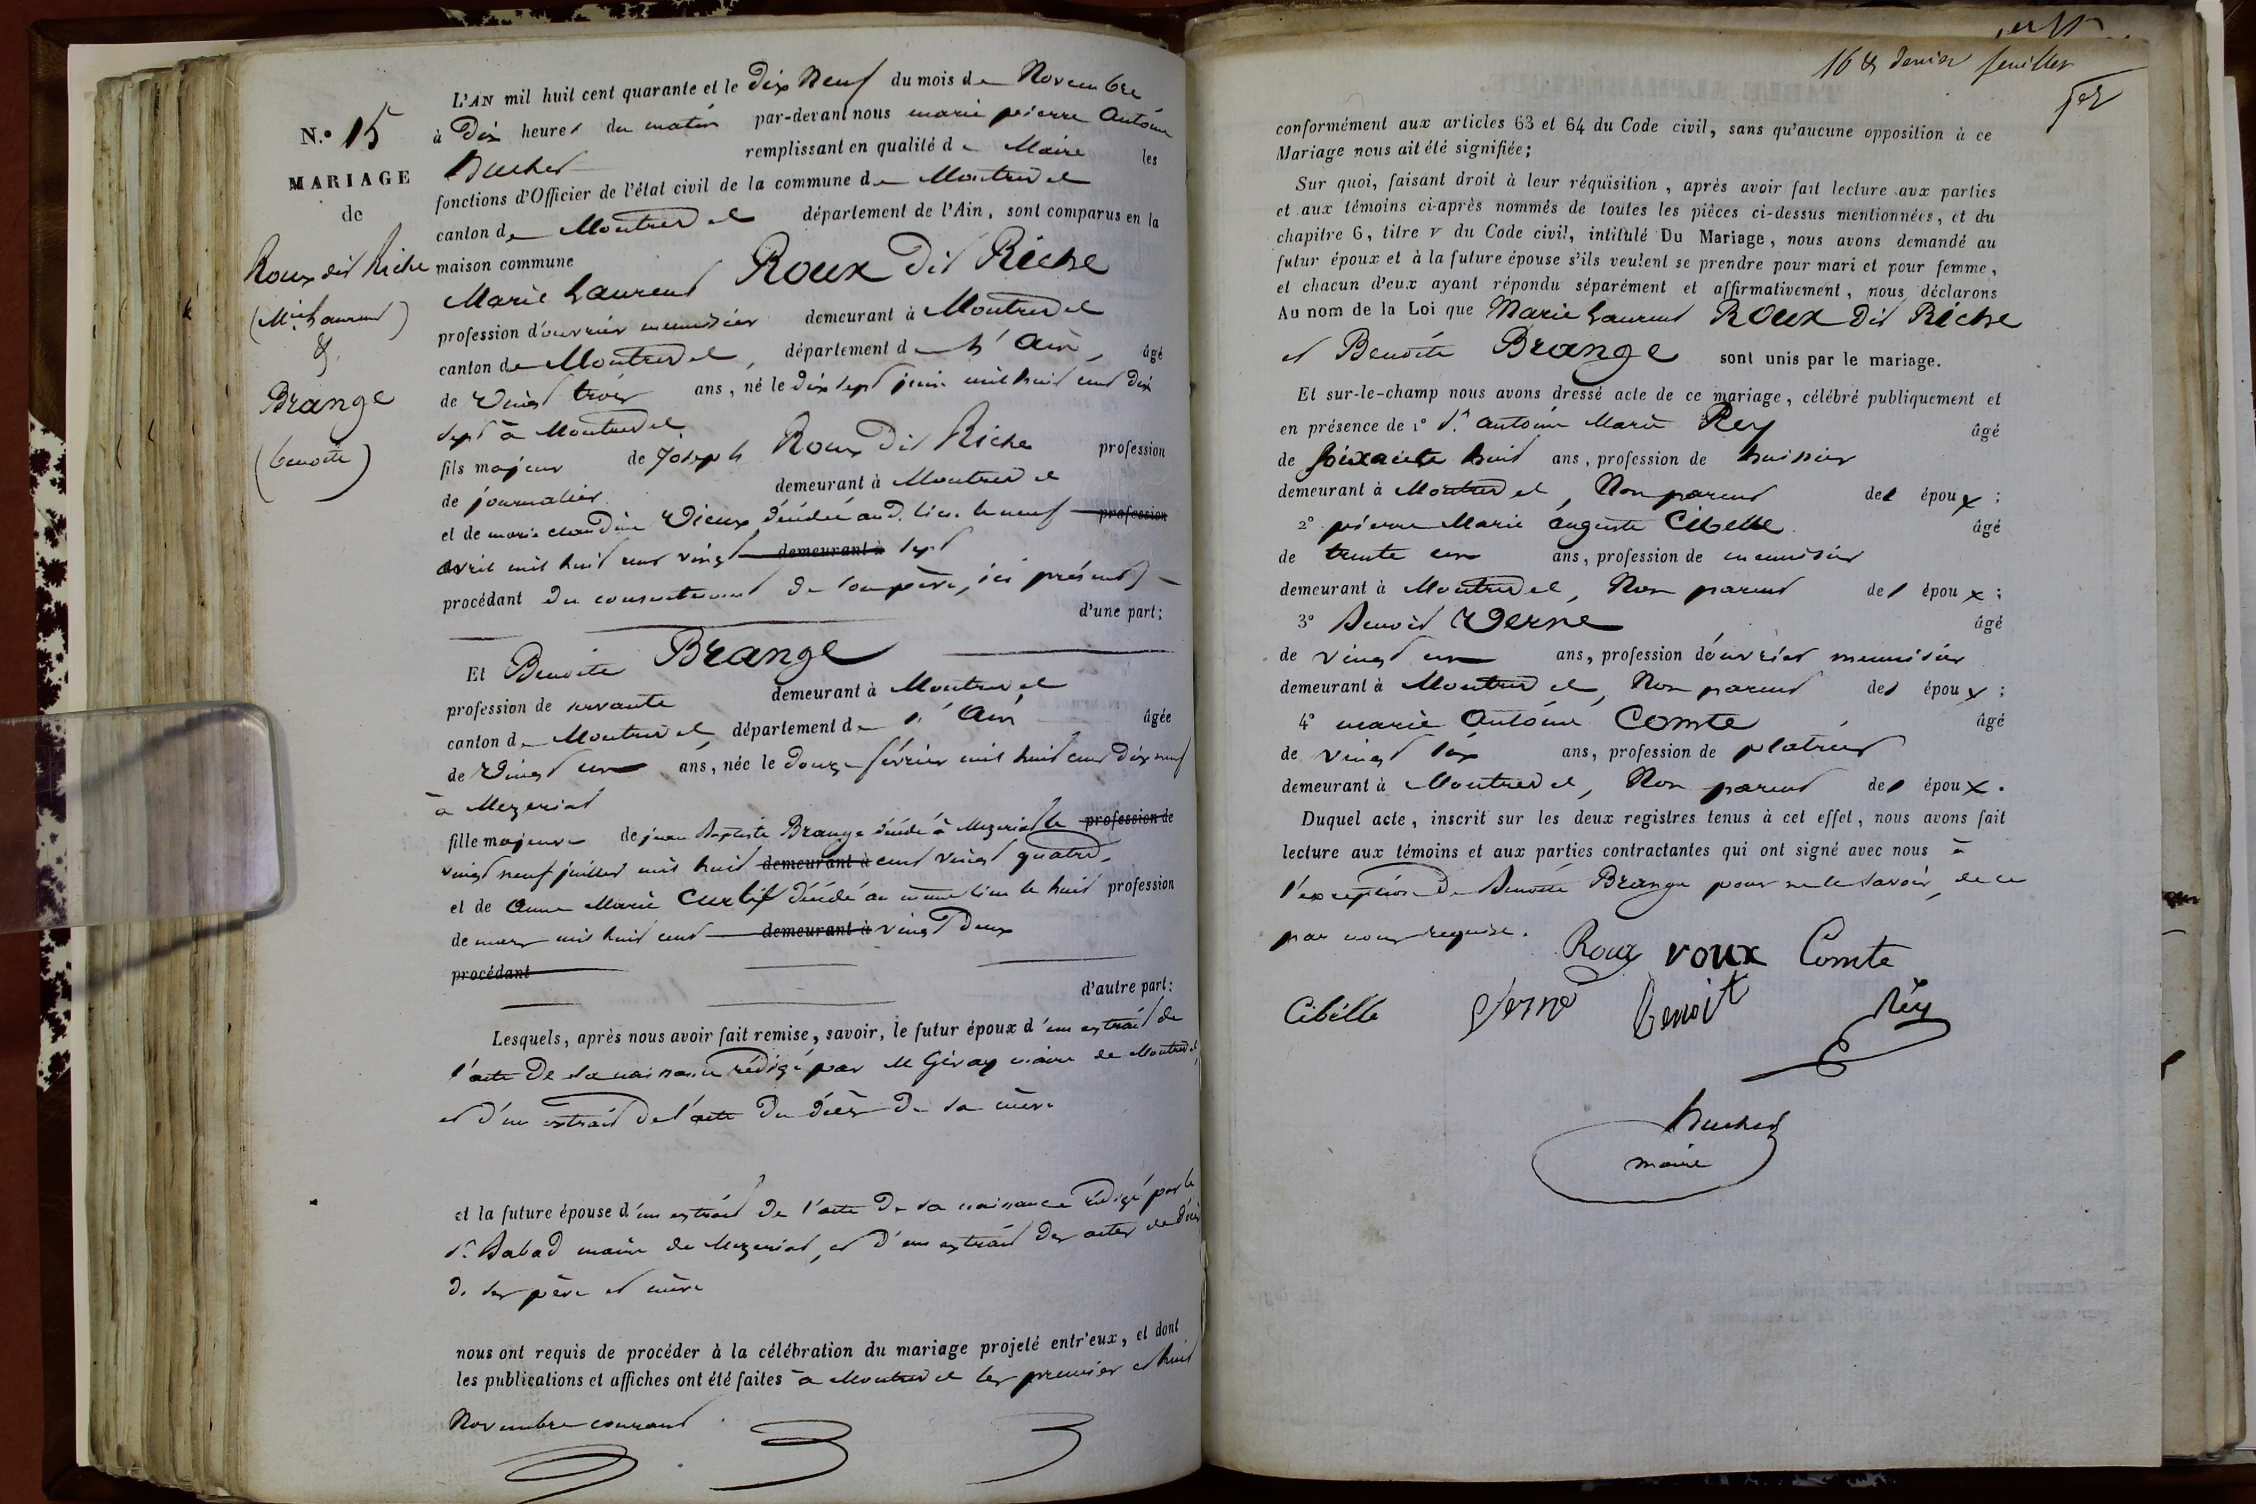 N.º 15
MARIAGE
de
Roux dit Riche
(Mie Laurent)
&
Brange
(benoite)
L'AN mil huit cent quarante et le dix neuf du mois de Novembre
à Dix heures du matin par-devant nous marie pierre Antoine
Buchet remplissant en qualité de Maire les
fonctions d'Officier de l'état civil de la commune de Montrevel
canton de Montrevel département de l'Ain, sont comparus en la
maison commune
Marie Laurent Roux Dit Riche
profession d'ouvrier menuisier demeurant à Montrevel
canton de Montrevel, département de L'Ain, âgé
de vingt trois ans, né le dix sept juin mil huit cent dix
sept à Montrevel
fils majeur de Joseph Roux Dit Riche profession
de journalier demeurant à Montrevel
et de marie claudine Vieux décédée aud. lieu le neuf profession
avril mil huit cent vingt demeurant à sept
procédant du consentement de son père, ici présent
d'une part;
Et Benoite Brange
profession de servante demeurant à Montrevel
canton de Montrevel, département de L'Ain âgée
de vingt un ans, née le douze février mil huit cent dix neuf
à Mezeriat
fille majeure de jean Baptiste Brange décédé à Mezeriat le profession de
vingt neuf juillet mil huit demeurant à cent vingt quatre
et de Anne Marie Curtif décédé au même lieu le huit profession
de mars mil huit cent demeurant à vingt deux
procédant
d'autre part;
Lesquels, après nous avoir fait remise, savoir, le futur époux d'un extrait de
l'acte de sa naissance rédigé par M Gévay maire de Montrevel
et d'un extrait de l'acte du décès de sa mère
et la future épouse d'un extrait de l'acte de sa naissance rédigé par le
Sr. Babad maire de Mezeriat, et d'un extrait des actes de décès
de ses père et mère
nous ont requis de procéder à la célébration du mariage projeté entr'eux, et dont
les publications et affiches ont été faites à Montrevel les premier et huit
Novembre courant
16 & dernier feuillet
conformément aux articles 63 et 64 du Code civil, sans qu'aucune opposition à ce
Mariage nous ait été signifiée;
Sur quoi, faisant droit à leur réquisition, après avoir fait lecture aux parties
et aux témoins ci-après nommés de toutes les pièces ci-dessus mentionnées, et du
chapitre 6, titre v du Code civil, intitulé Du Mariage, nous avons demandé au
futur époux et à la future épouse s'ils veulent se prendre pour mari et pour femme,
et chacun d'eux ayant répondu séparément et affirmativement, nous déclarons
Au nom de la Loi que Marie Laurent Roux Dit Riche
et Benoite Brange sont unis par le mariage.
Et sur-le-champ nous avons dressé acte de ce mariage, célébré publiquement et
en présence de 1° Sr. Antoine Marie Rey âgé
de soixante huit ans, profession de huissier
demeurant à Montrevel, Non parent des époux;
2° pierre Marie auguste Cibelle âgé
de trente un ans, profession de menuisier
demeurant à Montrevel, Non parent des époux;
3° Benoit Verne âgé
de vingt un ans, profession d'ouvrier menuisier
demeurant à Montrevel, Non parent des époux;
4° marie Antoine Comte âgé
de vingt six ans, profession de platrier
demeurant à Montrevel, Non parent des époux.
Duquel acte, inscrit sur les deux registres tenus à cet effet, nous avons fait
lecture aux témoins et aux parties contractantes qui ont signé avec nous à
l'exception de Benoite Brange pour ne le savoir, de ce
par nous requise.
Roux roux Comte
Cibélle Verne benoit Réy
Buchet
maire